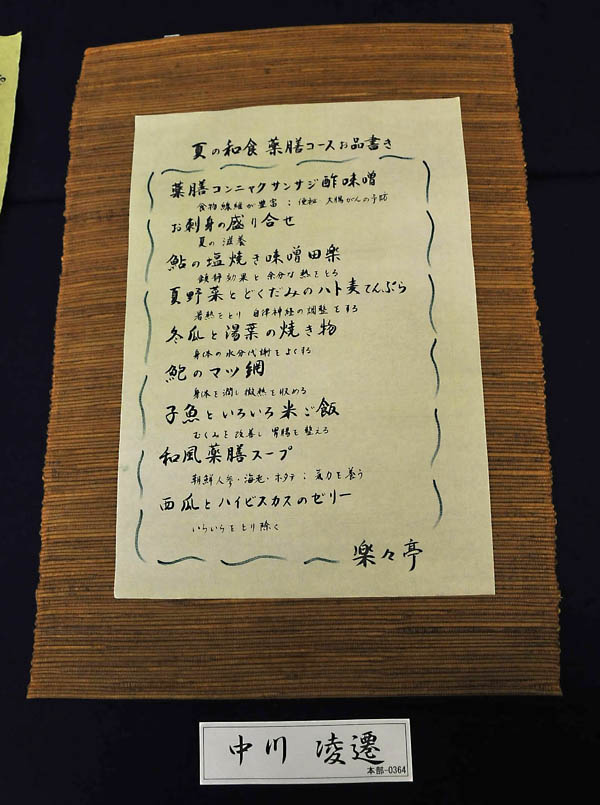 夏の和食 薬膳コースお品書き
薬膳コンニャクサンサジ酢味噌
食物繊維が豊富；便秘 大腸がんの予防
お刺身の盛り合せ
夏の滋養
鮎の塩焼き味噌田楽
鎮静効果と余分な熱をとる
夏野菜とどくだみのハト麦てんぷら
暑熱をとり 自律神経の調整をする
冬瓜と湯葉の焼き物
身体の水分代謝をよくする
鮑のマツ網
身体を潤し微熱を収める
子魚といろいろ米ご飯
むくみを改善し 胃腸を整える
和風薬膳スープ
朝鮮人参・海老・ホタテ；気力を養う
西瓜とハイビスカスのゼリー
いらいらをとり除く
楽々亭
中川 凌遷
本部-0364